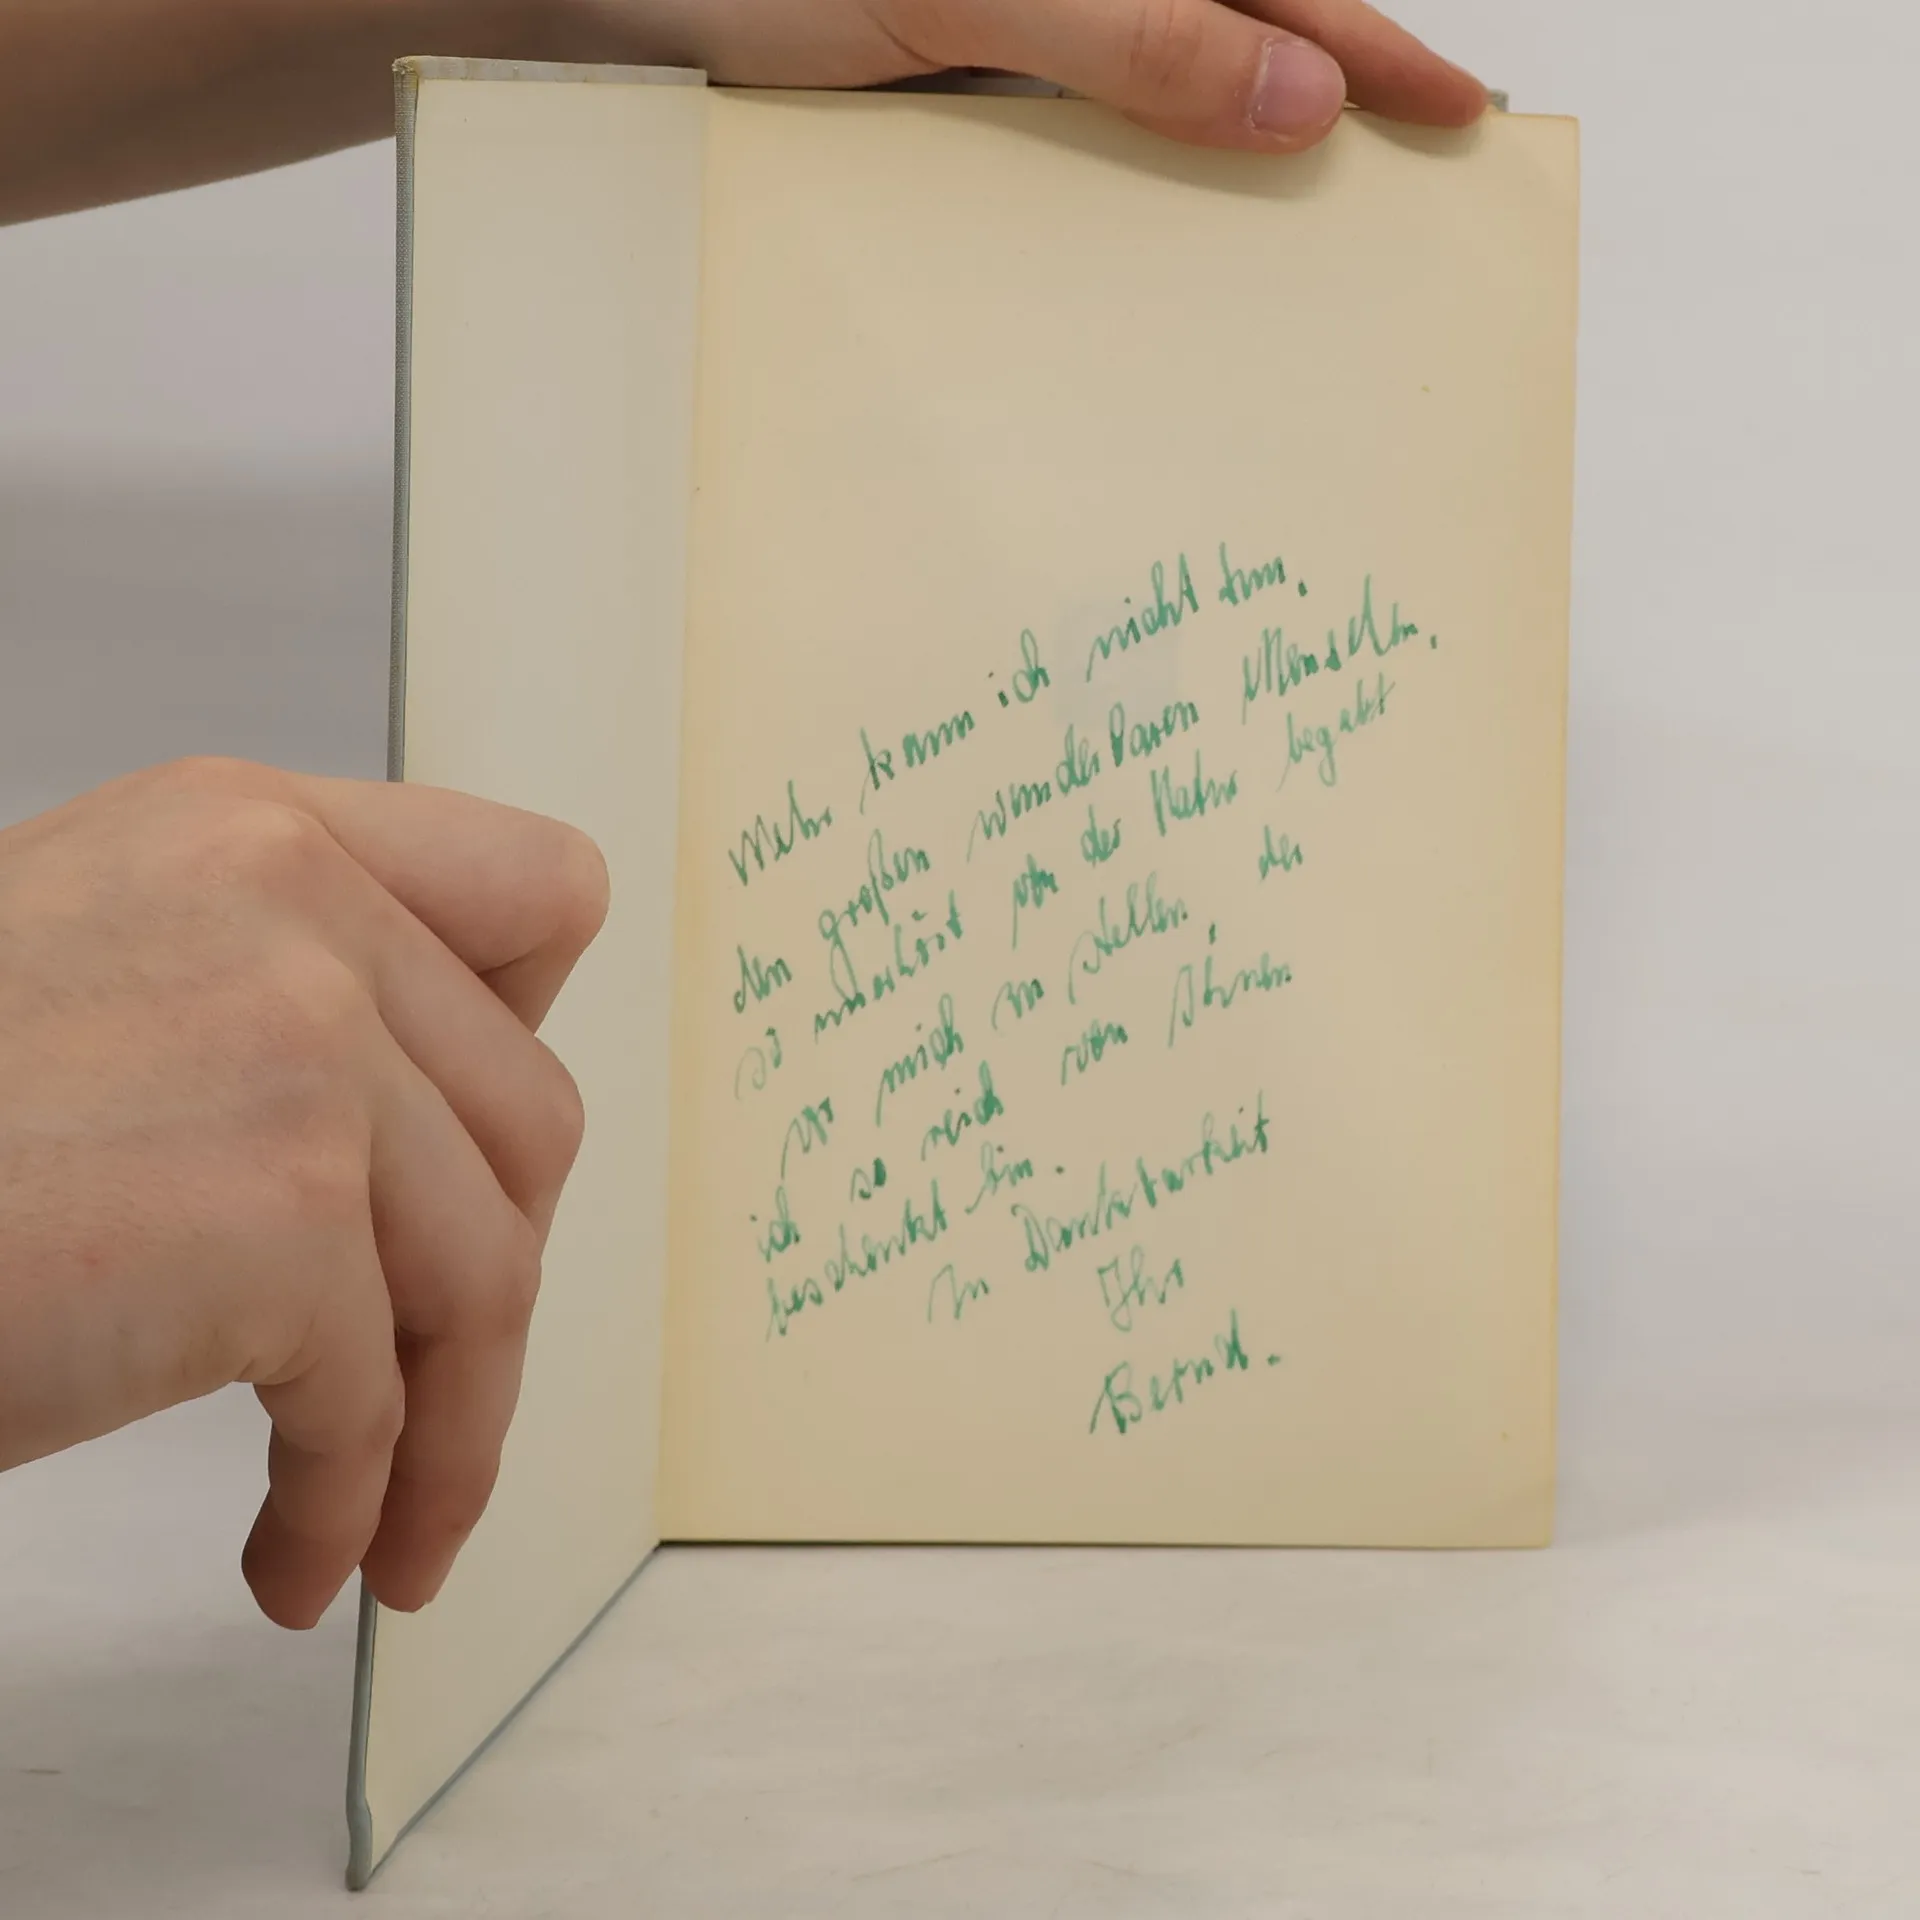 Mehr kann ich nicht tun,
den großen wunderbaren Menschen,
so unerhört von der Natur begabt
vor mich zu stellen, der
ich so reich von Ihnen
beschenkt bin.
In Dankbarkeit
Ihr
Bernd.